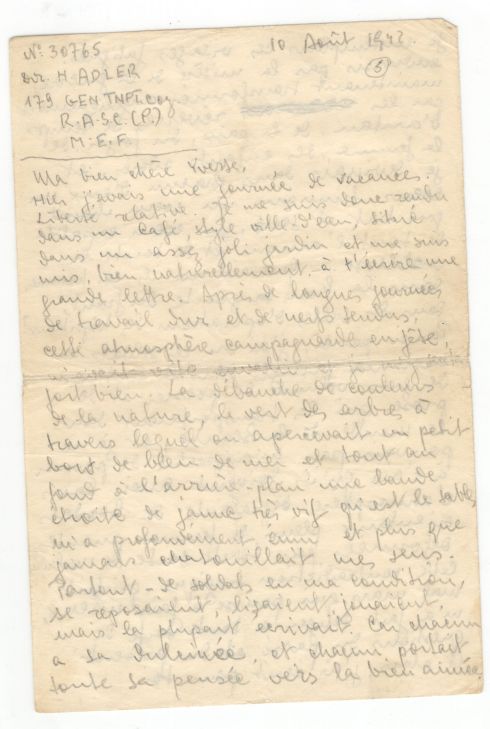 No 30765
Dr. H. ADLER
179 GEN.TNPT.Coy
R.A.S.C. (P.)
M.E.F.
10 Août 1942.
5
Ma bien chère Yvesse,
Hier j'avais une journée de vacances.
Liberté relative. Je me suis donc rendu
dans un café, style ville d'eau, situé
dans un assez joli jardin et me suis
mis, bien naturellement, à t'écrire une
grande lettre. Après de longues journées
de travail dur et de nerfs tendus,
cette atmosphère campagnarde en fête,
m'avait vite et je me
fort bien. La débauche de couleurs
de la nature, le vert des arbres à
travers lequel on apercevait un petit
bout de bleu de mer et tout au
fond à l'arrière-plan une bande
étroite de jaune très vif qui est le sable
m'a profondément ému et plus que
jamais chatouillait mes sens.
Partout - de soldats en ma condition,
se reposaient, lisaient, jouaient,
mais la plupart écrivait. Car chacun
a sa Dulcinée, et chacun portait
toute sa pensée vers la bien aimée.